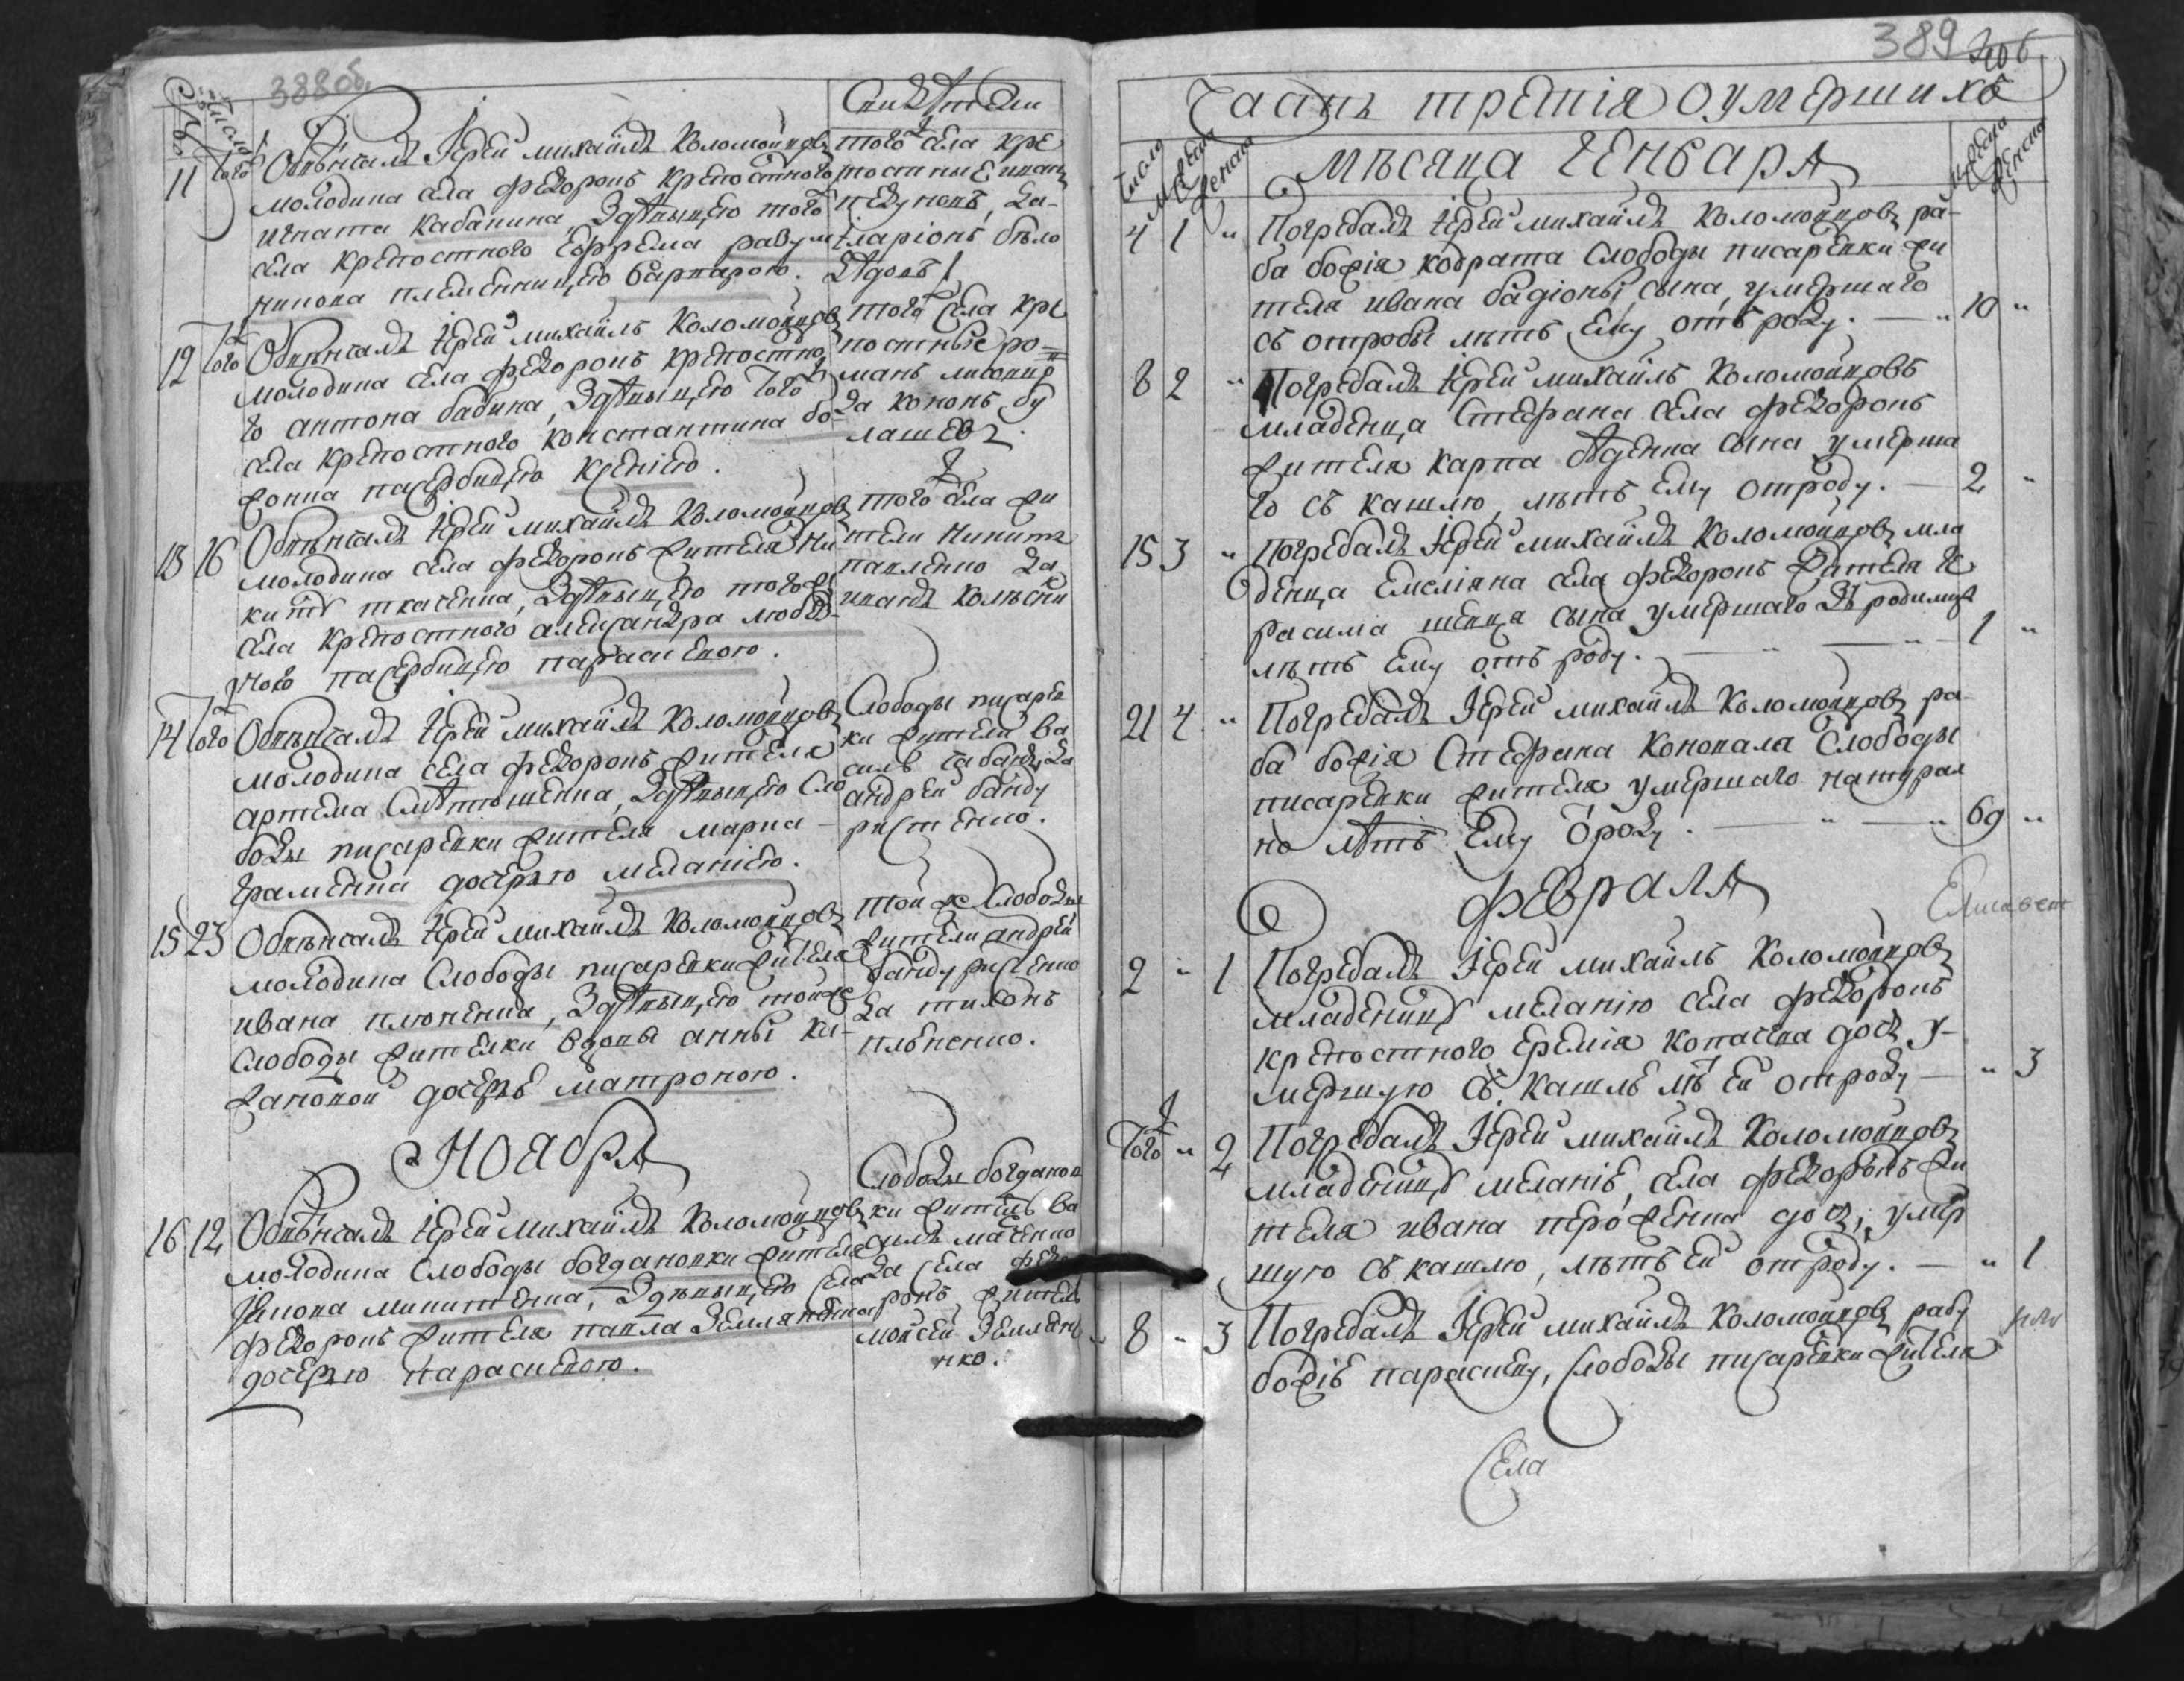 388 об.
Число
Свидѣтели
11 того
Обвѣнчалъ Іерей михаилъ Коломойцовъ
молодика села федоровъ крепостного
игната кабанина, Здѣвыцею того
села крепостного Ефрема разум
никова племенницею варварою.
того села кре
постные иванъ
недуновъ, да
іларіонъ бѣло
дѣдовъ
12 того
Обвѣнчалъ Іерей михаилъ Коломойцовъ
молодика села федоровъ крепостно
го антона бабина, Здѣвыцею того
села крепостного константина бо
пасербицею ксениею.
того села кре
постные ро
манъ
да кононъ бу
лашевъ
13 16
Обвѣнчалъ Іерей михаилъ Коломойцовъ
молодика села федоровъ жителя ни
киты ткаченка, Здѣвыцею того ж
села крепостного александра любез
ного пасербицею параскевою.
того села жи
тели никита
павленко да
иванъ колѣсни
14 того
Обвѣнчалъ Іерей михаилъ Коломойцовъ
молодика села федоровъ жителя
артема Слѣтюшенка, Здѣвыцею Сло
боды писаревки жителя марка
грамѣнка дочерью меланіею.
Слободы писарев
ки жители ва
силь да
андрей банду
ристенко.
15 23
Обвѣнчалъ Іерей михаилъ Коломойцовъ
молодика Слободы писаревки жителя
ивана плюненка, Здѣвыцею тойже
Слободы жителки вдовы анны ка
зановой дочерѣ матроною.
той ж Слободы
жители андрей
бандурисченко
да тихонъ
Ноября
16 12
Обвѣнчалъ Іерей михаилъ Коломойцовъ
молодика Слободы богдановки жителя
якова микитенка, Здѣвыцею села
федоровъ жителя павла Землянска
дочерью параскевою.
Слободы богданов
ки житель ва
силь маценко
да села федо
ровъ житель
мойсей Землян
ко.
389
Часть третія о умершихъ
Число
мужеска
женска
мѣсяца Генваря
мужеска
женска
4 1 „
Погребалъ Іерей михаилъ Коломойцовъ ра
ба божія кодрата Слободы писаревки жи
теля ивана сына, умершаго
съ отробы лѣтъ Ему отъ роду. — „ 10 „
8 2 „
Погребалъ Іерей михаилъ Коломойцовъ
младенца Стефана села федоровъ
жителя карпа дѣденка сына умерша
го съ кашлю, лѣтъ Ему отроду. — 2 „
15 3 „
Погребалъ Іерей михаилъ Коломойцовъ мла
денца Емеліяна села федоровъ жителя ге
расима шевця сына умершаго Зъ родимца
лѣтъ Ему отъ роду. — „ — „ — 1 „
21 4 „
Погребалъ Іерей михаилъ Коломойцовъ ра
ба божія Стефана Коновала Слободы
писаревки жителя умершаго натурал
но лѣтъ Ему ороду. — „ — „ 69 „
февраля
Елисавет
2 „ 1
Погребалъ Іерей михаилъ Коломойцовъ
младеницу меланію села федоровъ
крепостного Еремія копаска дочь у
мершую съ кашлѣ лѣ Ей отроду — „ 3
того „ 2
Погребалъ Іерей михаилъ Коломойцовъ
младеницу меланіѣ, села федоровъ жи
теля ивана дочь, умер
шую съ кашлю, лѣтъ Ей отроду. — „ 1
8 „ 3
Погребалъ Іерей михаилъ Коломойцовъ рабу
божіѣ параскеву, Слободы писаревки жителя
Села